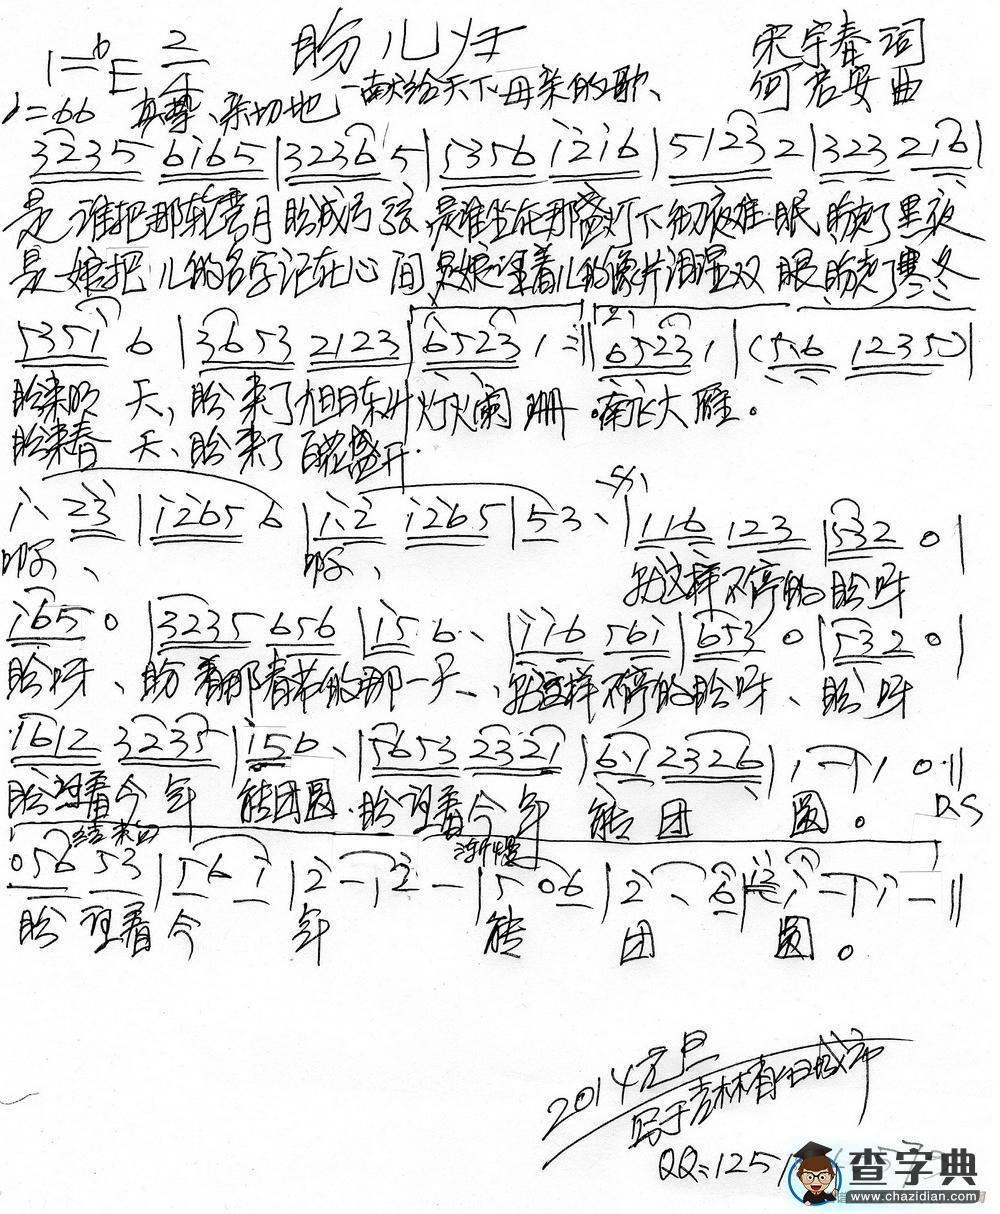 盼儿归
宋宇春 词
1=♭E 2/4
—献给天下母亲的歌
何君安 曲
♩=66 真挚、亲切地
3235 6165 | 3236 5 | 5356 1216 | 5123 2 | 323 216 |
是谁把那轮弯月盼成弓弦,是谁坐在那盏灯下彻夜难眠 盼走了黑夜
是娘把儿的名字记在心间 是娘望着儿的像片泪湿双眼 盼走了寒冬
5351 6 | 3653 2123 | 6523 1 :|| 2) 6523 1 | (5.6 1235) |
盼来明天,盼来了旭日东升 灯火阑珊。南飞大雁。
盼来春天,盼来了百花盛开.
1. 23 | 1265 6 | 1.2 1265 | 53. | 116 123 | 532 0 |
啊、 啊、 就这样不停的盼呀
165 0 | 3235 656 | 156. | 116 561 | 653 0 | 532 0 |
盼呀、盼着那春节的那一天、就这样不停的盼呀、盼呀
1612 3235 | 156. | 5653 2321 | 6.1 2326 | 1 - | 1 0 ||
盼望着今年能团圆.盼望着今年能团圆。 D.S
结束句 渐慢
056 53 | 56 1 | 2 - | 2 - | 5 06 | 2. 6 | 1 - | 1 - ||
盼望着今年能团圆。
2014元旦
写于吉林省白城市
QQ:1251
查字典
www.chazidian.com